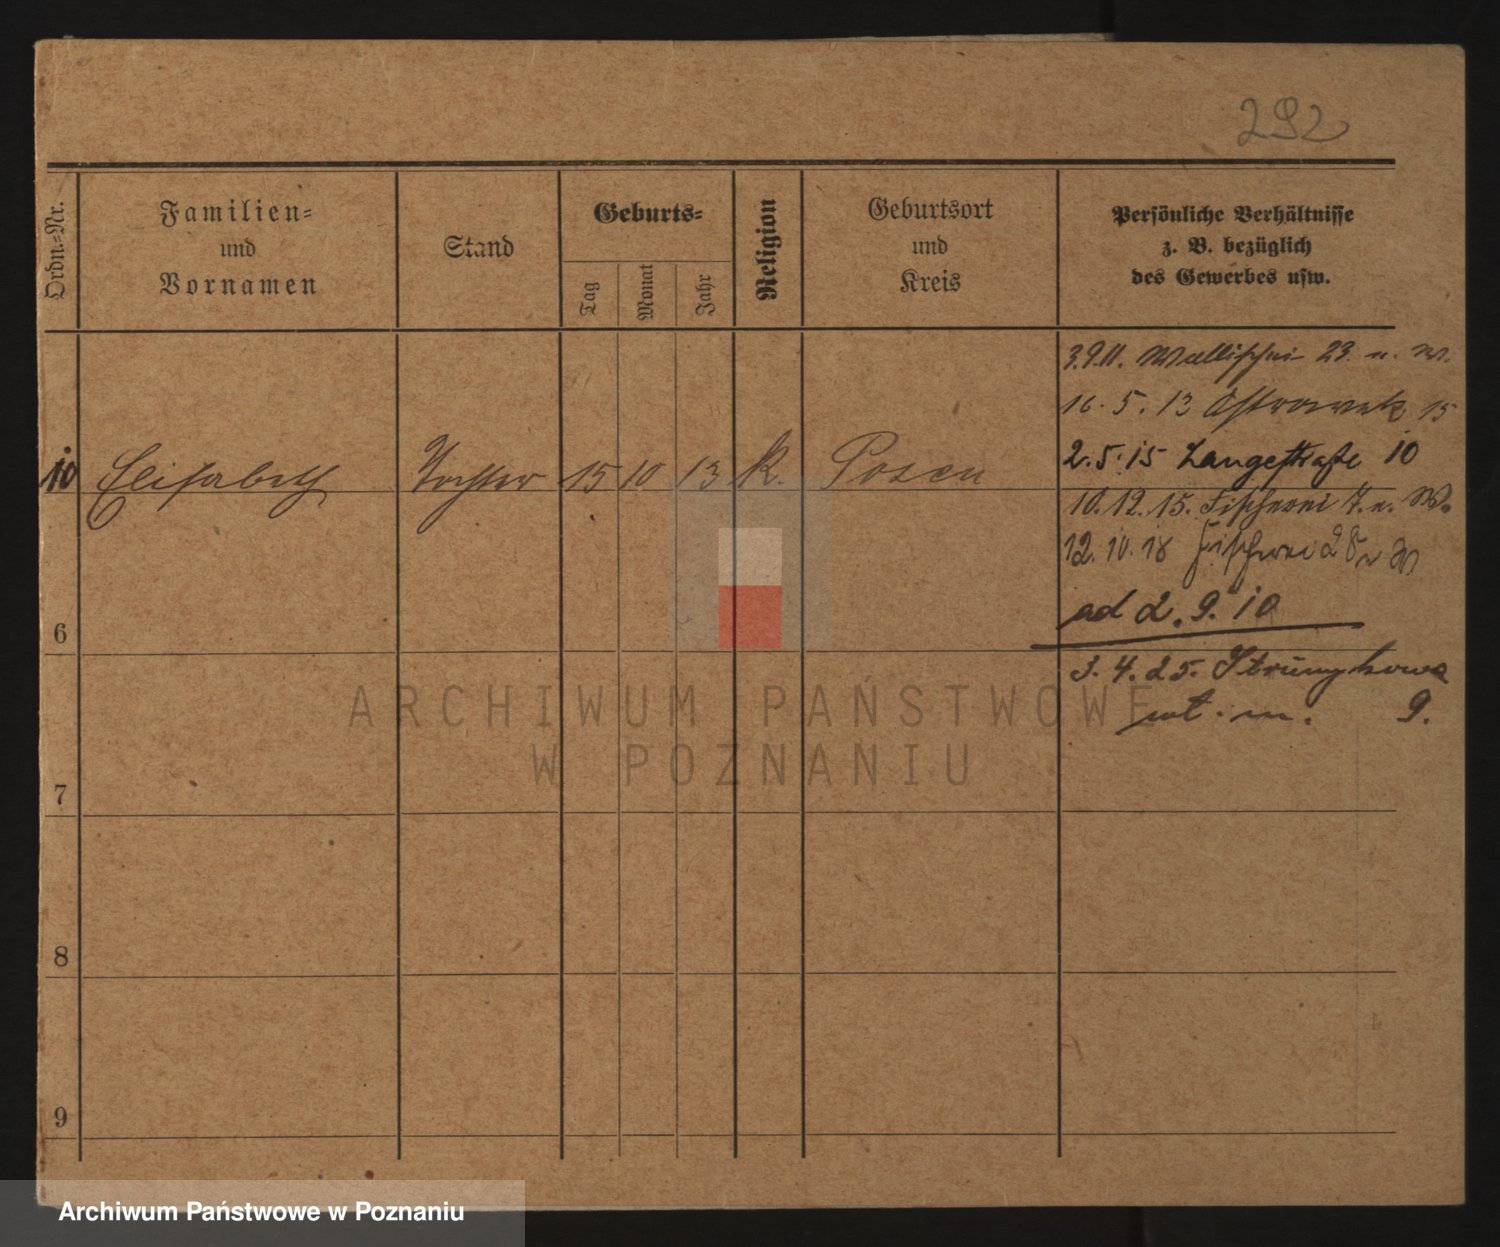 292
Ordn.=Nr.
Familien=
und
Vornamen
Stand
Geburts=
Tag
Monat
Jahr
Religion
Geburtsort
und
Kreis
Persönliche Verhältnisse
z. B. bezüglich
des Gewerbes usw.
3.9.11. Wallischei 23. u. W.
16. 5. 13 Ostrowek 15
2. 5. 15 Langestraße 10
10 Elisabeth Tochter 15 10 13 k. Posen
10. 12. 15. Fischerei 7. u. W.
12. 10. 18 Fischerei 28 u W
ad 2. 9. 10
6
3. 4. 25. Strumykowa
m. 9.
7
8
9
ARCHIWUM PAŃSTWOWE
W POZNANIU
Archiwum Państwowe w Poznaniu